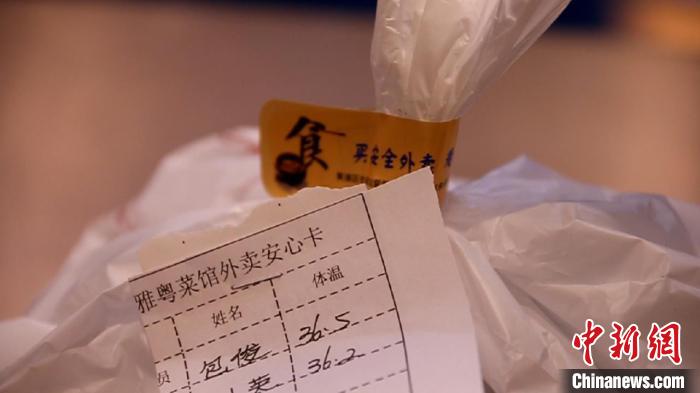 食
买安全外卖
雅粤菜馆外卖安心卡
姓名 体温
员 包俊 36.5
英 36.2
中新网
Chinanews.com